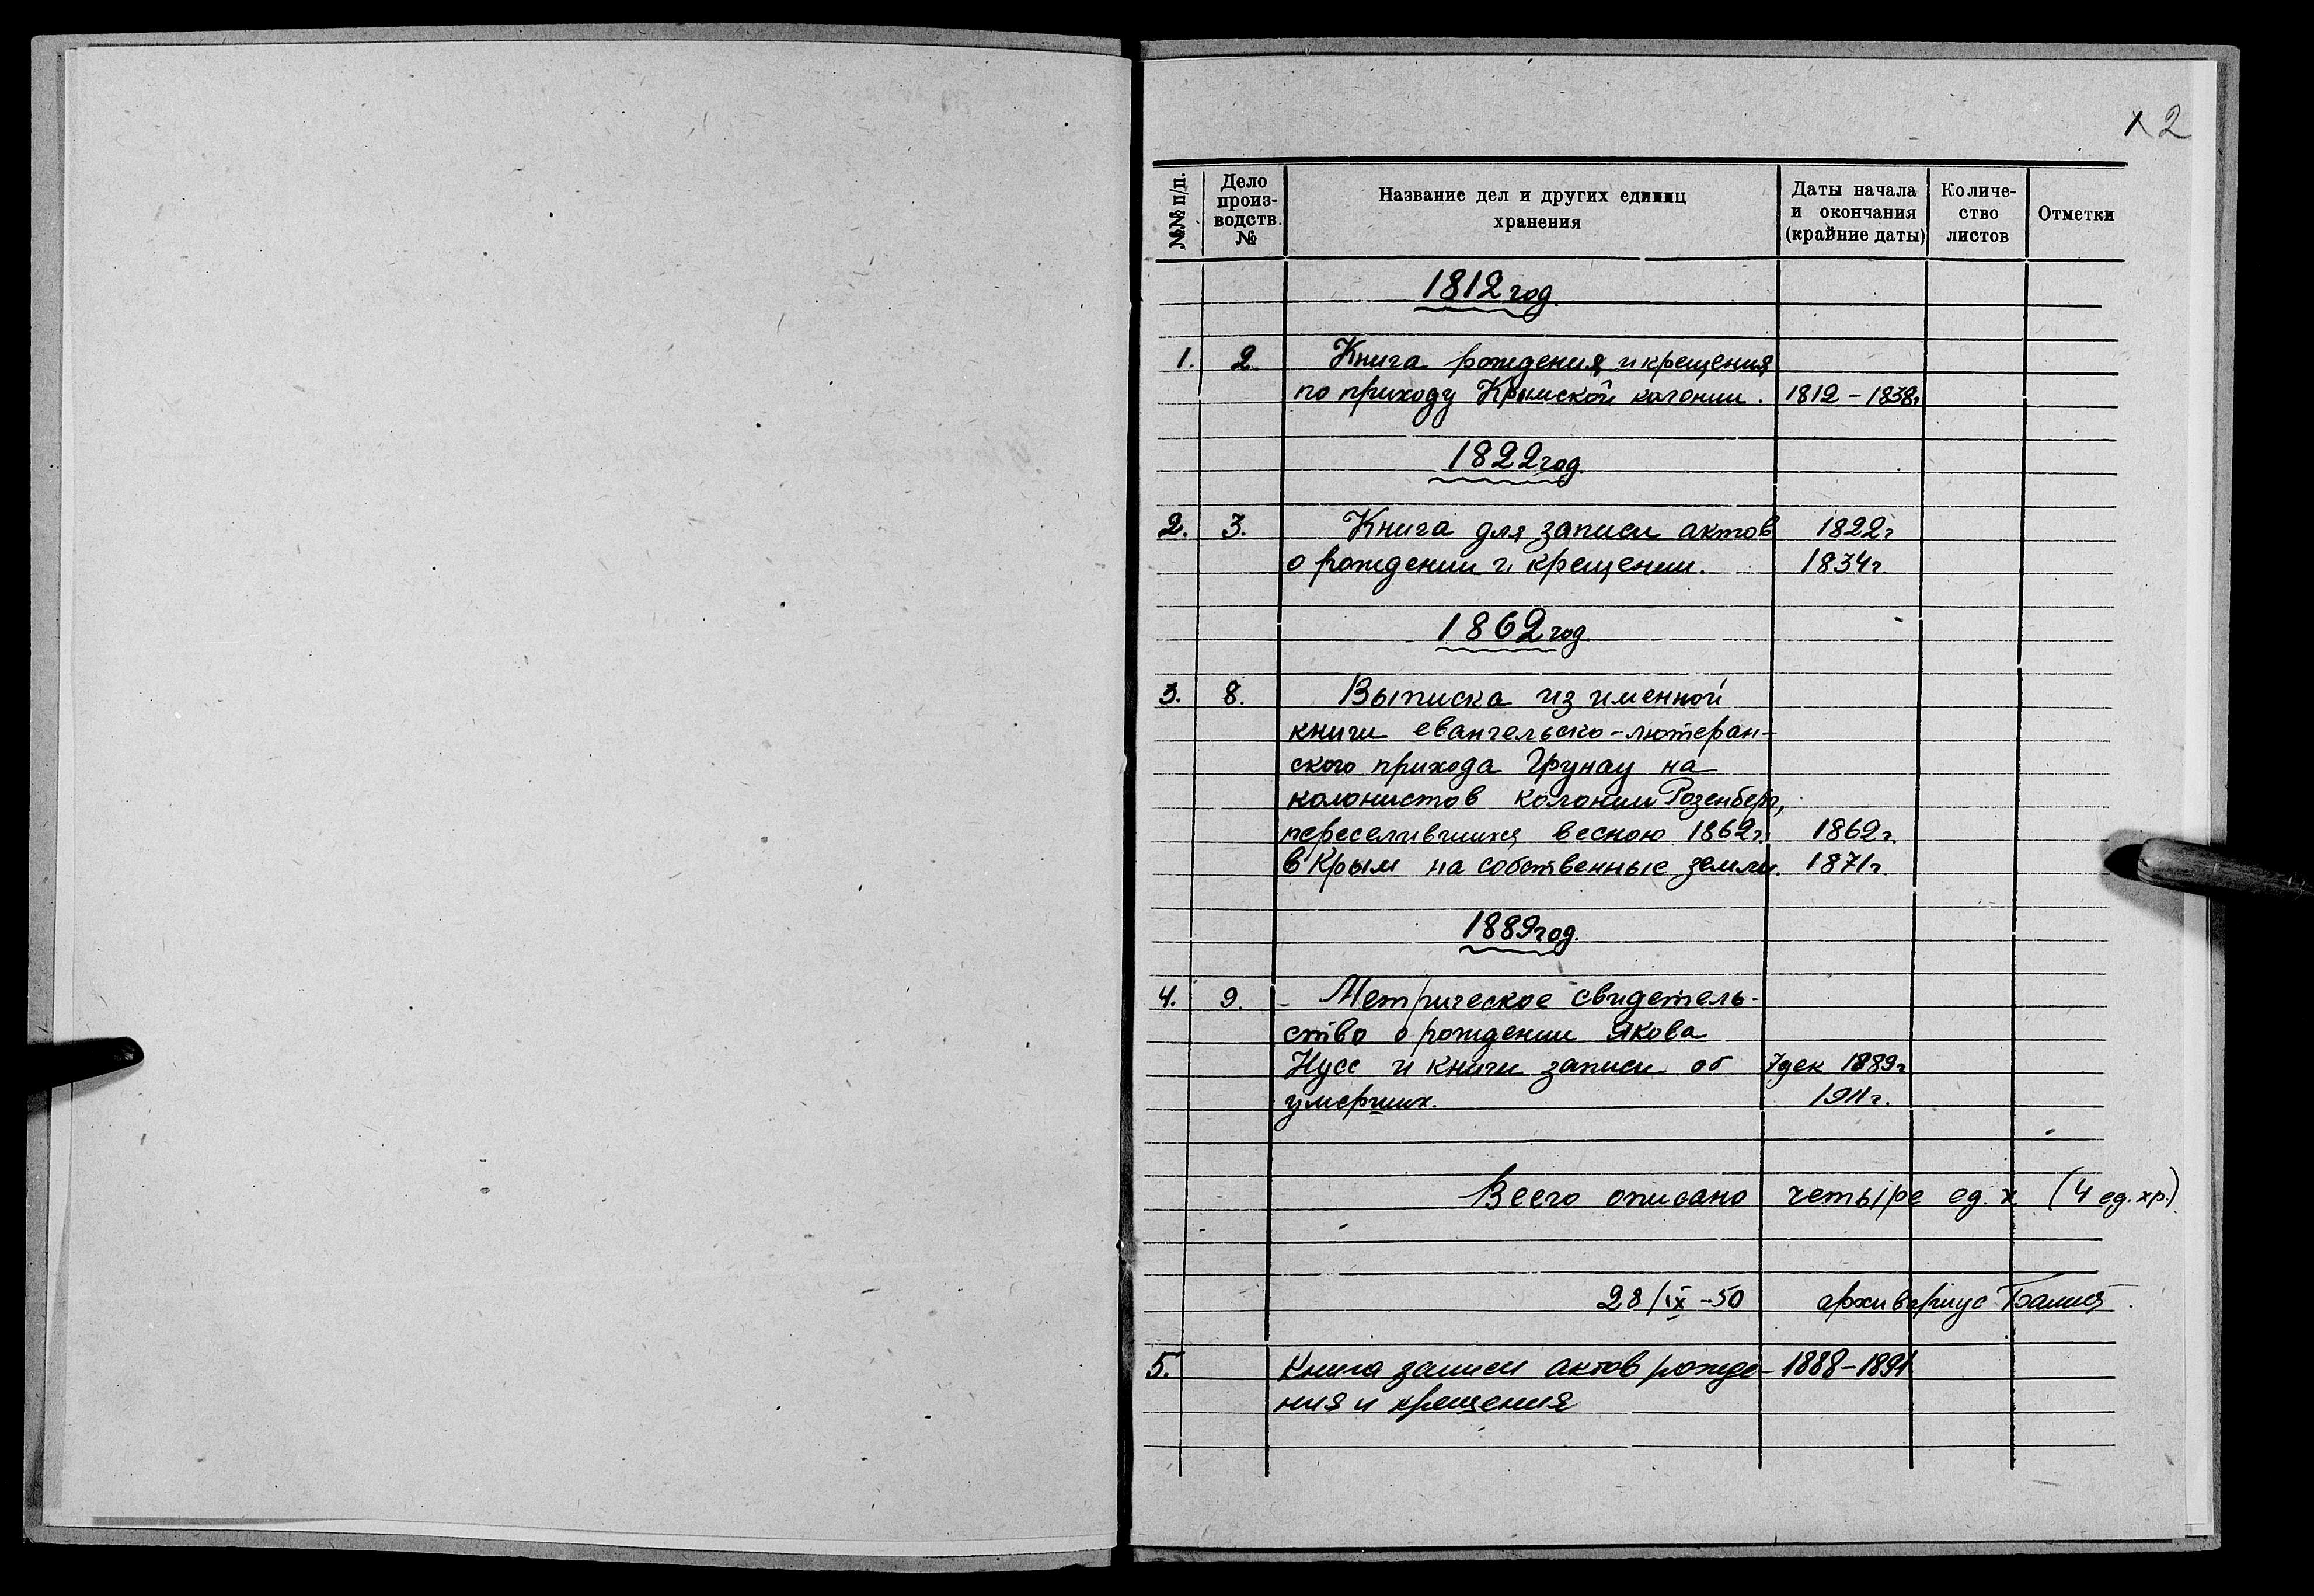 х 2
№№ п/п.
Дело произ-водств. №
Название дел и других единиц хранения
Даты начала и окончания (крайние даты)
Количе-ство листов
Отметки
1812 год.
1. 2. Книга рождения и крещения
по приходу Крымской колонии. 1812 – 1838г.
1822 год.
2. 3. Книга для записи актов 1822г
о рождении и крещении. 1834г.
1862 год
3. 8. Выписка из именной
книги евангельско-лютеран-
ского прихода Грунау на
колонистов колонии Розенберг,
переселившихся весною 1862г. 1862г.
в Крым на собственные земли. 1871г
1889 год.
4. 9. – Метрическое свидетель-
ство о рождении Якова
Нусс и книги записи об 7 дек 1889г
умерших. 1911г.
Всего описано четыре ед. х (4 ед. хр.)
28/IX –50 архивариус
5. Книга записи актов рожде- 1888–1891
ния и крещения